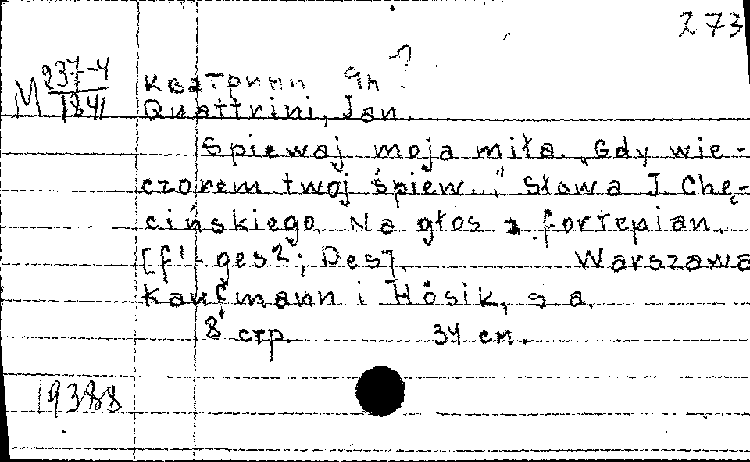 273
M 237-4
1841
Кваттрини Ян ?
Quattrini, Jan.
Śpiewaj moja miła. „Gdy wie-
czorem twoj śpiew..." Słowa J. Chę-
cińskiego. Na głos z fortepian.
[f¹-ges²; Des]. Warszawa
Kaufmann i Hösik, s a.
8 стр. 34 см.
19388